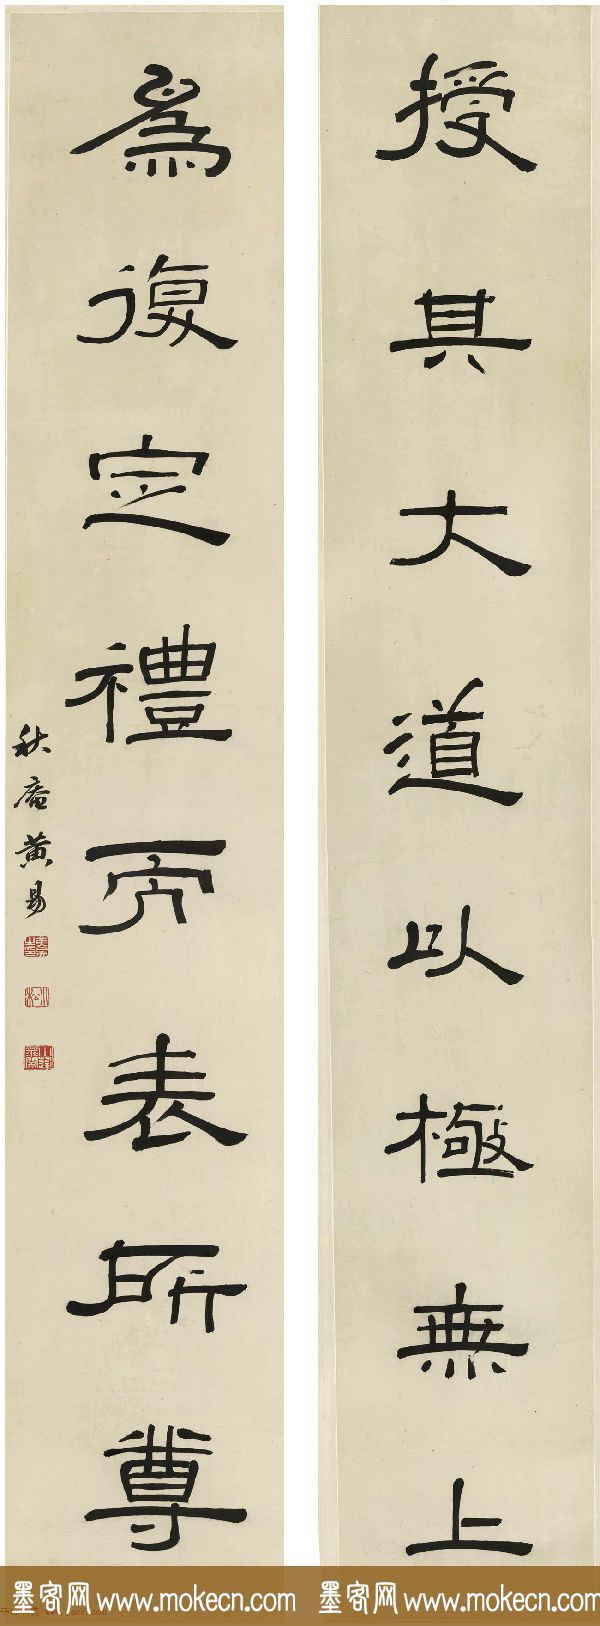 授其大道以極無上
為復定禮而表所尊
秋盦黃易
小松
墨客网 www.mokecn.com
墨客网 www.mokecn.com